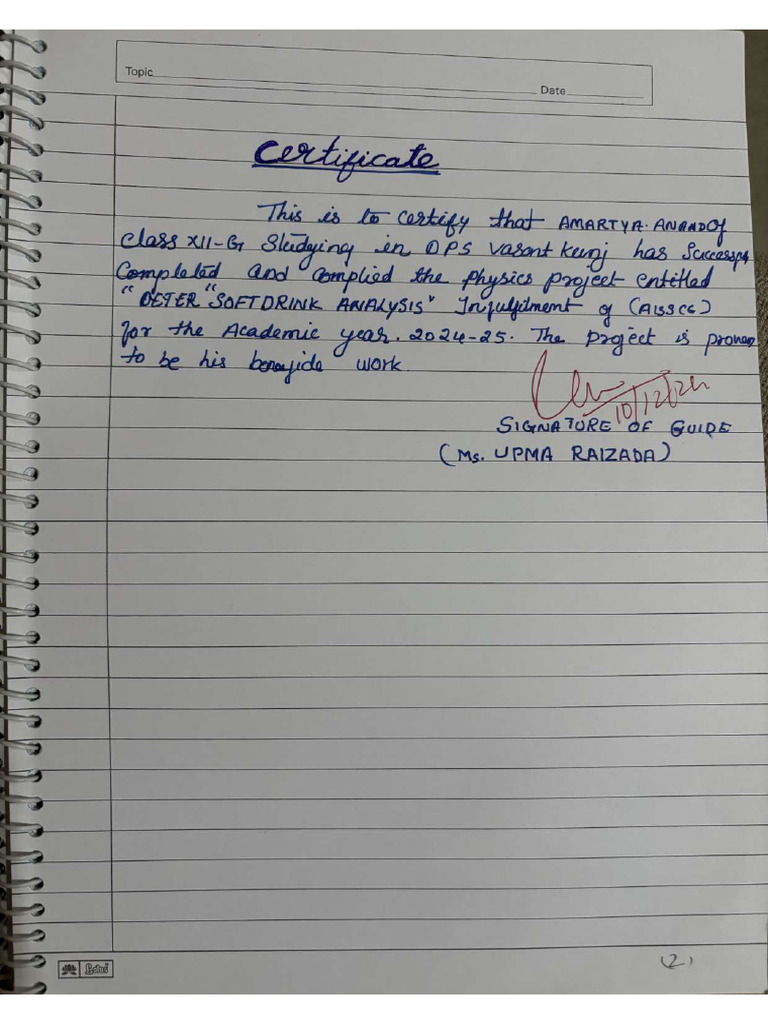 Topic
Date
Certificate
This is to certify that AMARTYA. ANAND of
class XII-G Studying in DPS Vasant Kunj has Successfu
Completed and complied the physics project entitled
"DETER "SOFT DRINK ANALYSIS" In fulfilment of (AISSCE)
for the Academic year. 2024-25. The project is proven
to be his bonafide work.
10/12/24
SIGNATURE OF GUIDE
(Ms. UPMA RAIZADA)
Lotus
(2)